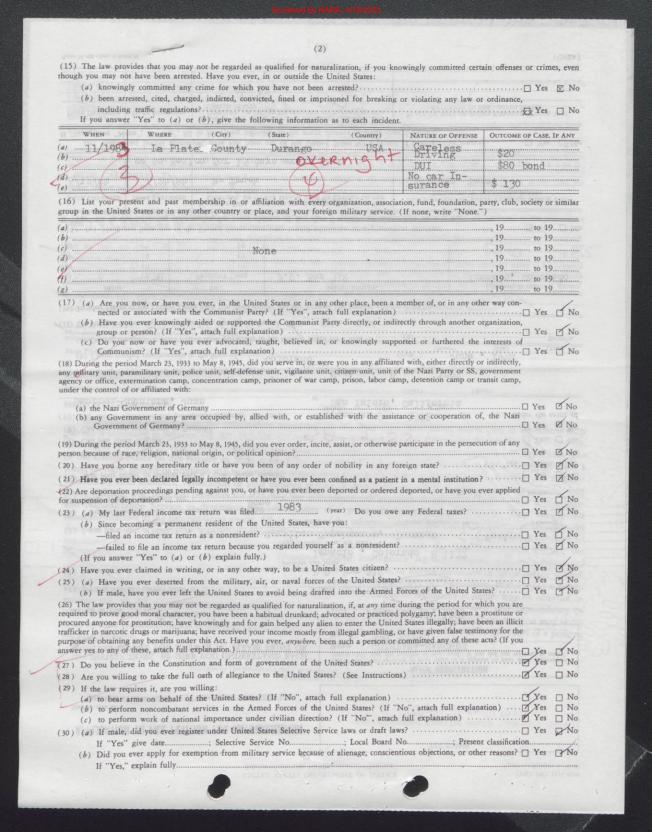 (2)
(15) The law provides that you may not be regarded as qualified for naturalization, if you knowingly committed certain offenses or crimes, even
though you may not have been arrested. Have you ever, in or outside the United States:
(a) knowingly committed any crime for which you have not been arrested? ☐ Yes ☒ No
(b) been arrested, cited, charged, indicted, convicted, fined or imprisoned for breaking or violating any law or ordinance,
including traffic regulations? ☒ Yes ☐ No
If you answer "Yes" to (a) or (b), give the following information as to each incident.
WHEN WHERE (City) (State) (Country) NATURE OF OFFENSE OUTCOME OF CASE, IF ANY
(a) 11/1983 La Plata County Durango USA Careless
(b) Driving $20
overnight
(c) DUI $80 bond
(d) 3 4 No car In-
(e) surance $ 130
(16) List your present and past membership in or affiliation with every organization, association, fund, foundation, party, club, society or similar
group in the United States or in any other country or place, and your foreign military service. (If none, write "None.")
(a) , 19 to 19
(b) , 19 to 19
(c) None , 19 to 19
(d) , 19 to 19
(e) , 19 to 19
(f) , 19 to 19
(g) , 19 to 19
(17) (a) Are you now, or have you ever, in the United States or in any other place, been a member of, or in any other way con-
nected or associated with the Communist Party? (If "Yes", attach full explanation) ☐ Yes ☑ No
(b) Have you ever knowingly aided or supported the Communist Party directly, or indirectly through another organization,
group or person? (If "Yes", attach full explanation) ☐ Yes ☑ No
(c) Do you now or have you ever advocated, taught, believed in, or knowingly supported or furthered the interests of
Communism? (If "Yes", attach full explanation) ☐ Yes ☑ No
(18) During the period March 23, 1933 to May 8, 1945, did you serve in, or were you in any affiliated with, either directly or indirectly,
any military unit, paramilitary unit, police unit, self-defense unit, vigilante unit, citizen unit, unit of the Nazi Party or SS, government
agency or office, extermination camp, concentration camp, prisoner of war camp, prison, labor camp, detention camp or transit camp,
under the control of or affiliated with:
(a) the Nazi Government of Germany ☐ Yes ☑ No
(b) any Government in any area occupied by, allied with, or established with the assistance or cooperation of, the Nazi
Government of Germany? ☐ Yes ☑ No
(19) During the period March 23, 1933 to May 8, 1945, did you ever order, incite, assist, or otherwise participate in the persecution of any
person because of race, religion, national origin, or political opinion? ☐ Yes ☑ No
(20) Have you borne any hereditary title or have you been of any order of nobility in any foreign state? ☐ Yes ☑ No
(21) Have you ever been declared legally incompetent or have you ever been confined as a patient in a mental institution? ☐ Yes ☑ No
(22) Are deportation proceedings pending against you, or have you ever been deported or ordered deported, or have you ever applied
for suspension of deportation? ☐ Yes ☑ No
(23) (a) My last Federal income tax return was filed 1983 (year) Do you owe any Federal taxes? ☐ Yes ☑ No
(b) Since becoming a permanent resident of the United States, have you:
—filed an income tax return as a nonresident? ☐ Yes ☑ No
—failed to file an income tax return because you regarded yourself as a nonresident? ☐ Yes ☑ No
(If you answer "Yes" to (a) or (b) explain fully.)
(24) Have you ever claimed in writing, or in any other way, to be a United States citizen? ☐ Yes ☑ No
(25) (a) Have you ever deserted from the military, air, or naval forces of the United States? ☐ Yes ☑ No
(b) If male, have you ever left the United States to avoid being drafted into the Armed Forces of the United States? ☐ Yes ☑ No
(26) The law provides that you may not be regarded as qualified for naturalization, if, at any time during the period for which you are
required to prove good moral character, you have been a habitual drunkard; advocated or practiced polygamy; have been a prostitute or
procured anyone for prostitution; have knowingly and for gain helped any alien to enter the United States illegally; have been an illicit
trafficker in narcotic drugs or marijuana; have received your income mostly from illegal gambling, or have given false testimony for the
purpose of obtaining any benefits under this Act. Have you ever, anywhere, been such a person or committed any of these acts? (If you
answer yes to any of these, attach full explanation.) ☐ Yes ☑ No
(27) Do you believe in the Constitution and form of government of the United States? ☑ Yes ☐ No
(28) Are you willing to take the full oath of allegiance to the United States? (See Instructions) ☑ Yes ☐ No
(29) If the law requires it, are you willing:
(a) to bear arms on behalf of the United States? (If "No", attach full explanation) ☑ Yes ☐ No
(b) to perform noncombatant services in the Armed Forces of the United States? (If "No", attach full explanation) ☑ Yes ☐ No
(c) to perform work of national importance under civilian direction? (If "No", attach full explanation) ☑ Yes ☐ No
(30) (a) If male, did you ever register under United States Selective Service laws or draft laws? ☐ Yes ☑ No
If "Yes" give date ; Selective Service No. ; Local Board No. ; Present classification
(b) Did you ever apply for exemption from military service because of alienage, conscientious objections, or other reasons? ☐ Yes ☑ No
If "Yes," explain fully